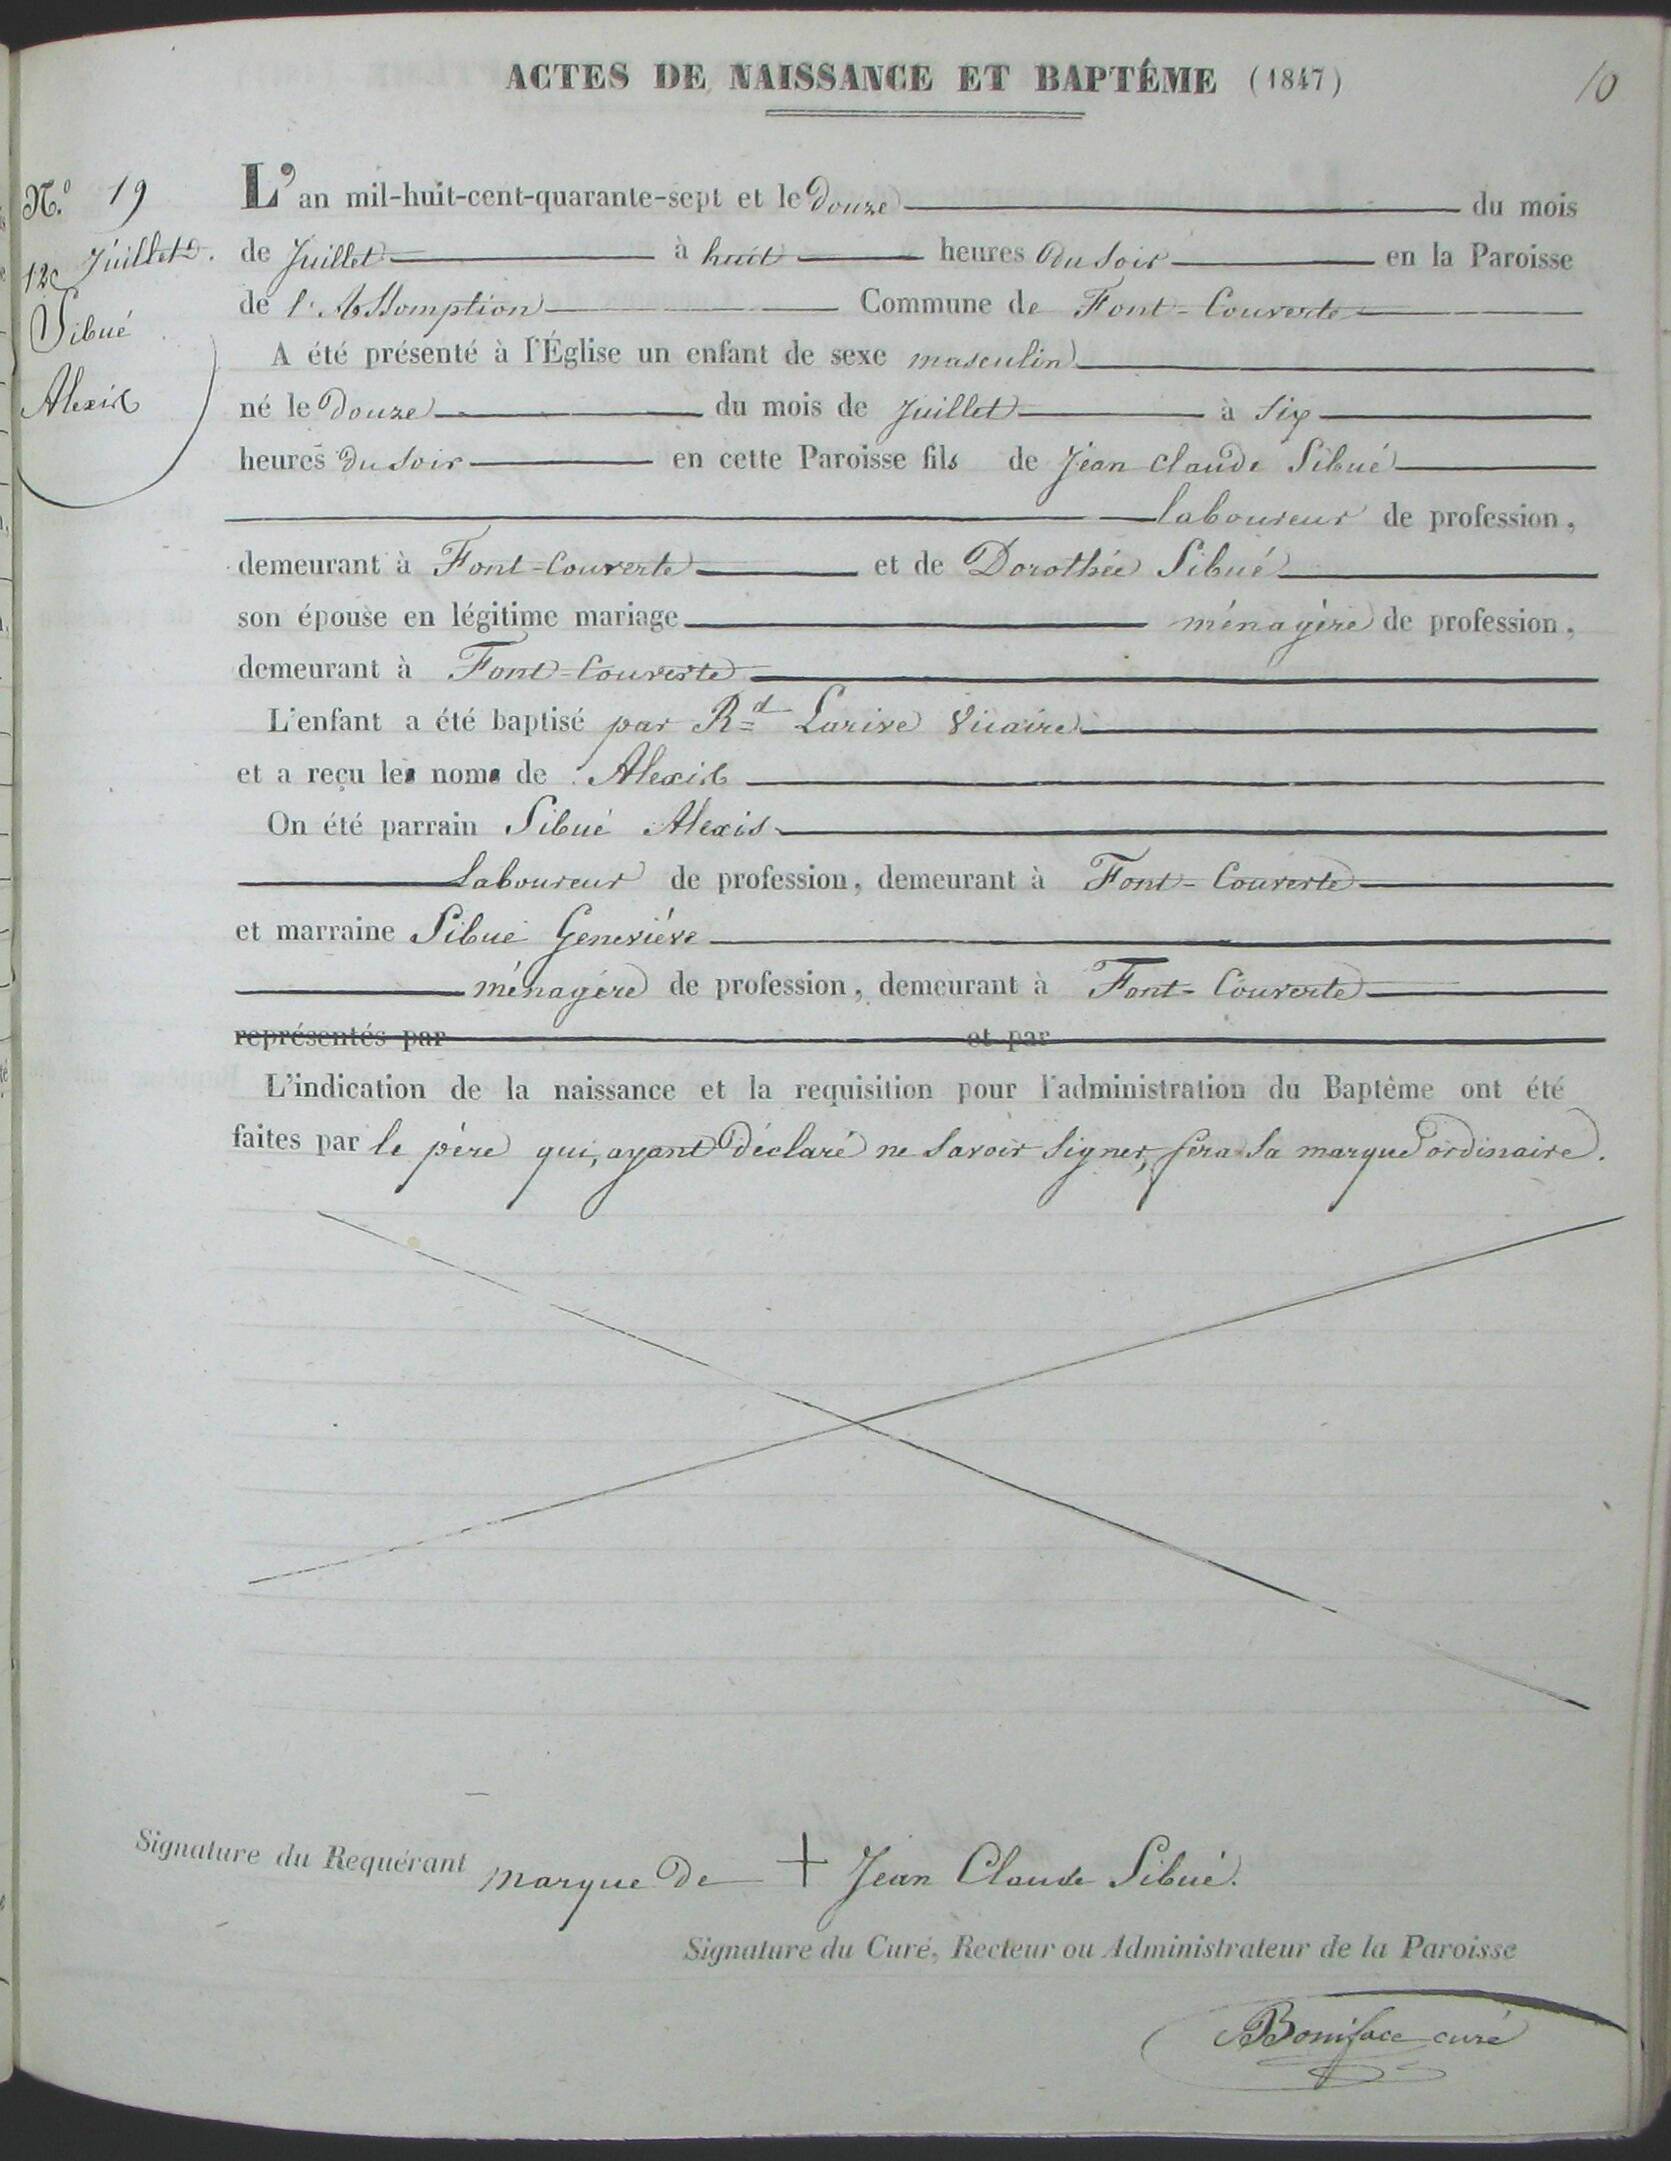 ACTES DE NAISSANCE ET BAPTÊME (1847)
10
N.º 19
12 Juillet
Sibué
Alexis
L'an mil-huit-cent-quarante-sept et le douze du mois
de Juillet à huit heures du soir en la Paroisse
de l'Assomption Commune de Font-Couverte
A été présenté à l'Église un enfant de sexe masculin
né le douze du mois de Juillet à six
heures du soir en cette Paroisse fils de Jean Claude Sibué
laboureur de profession,
demeurant à Font-Couverte et de Dorothée Sibué
son épouse en légitime mariage ménagère de profession,
demeurant à Font-Couverte
L'enfant a été baptisé par Rd Larive Vicaire
et a reçu les noms de Alexis
On été parrain Sibué Alexis
Laboureur de profession, demeurant à Font-Couverte
et marraine Sibué Geneviève
ménagère de profession, demeurant à Font-Couverte
représentés par et par
L'indication de la naissance et la requisition pour l'administration du Baptême ont été
faites par le père qui, ayant déclaré ne savoir signer, fera sa marque ordinaire.
Signature du Requérant marque de + Jean Claude Sibué.
Signature du Curé, Recteur ou Administrateur de la Paroisse
Boniface curé